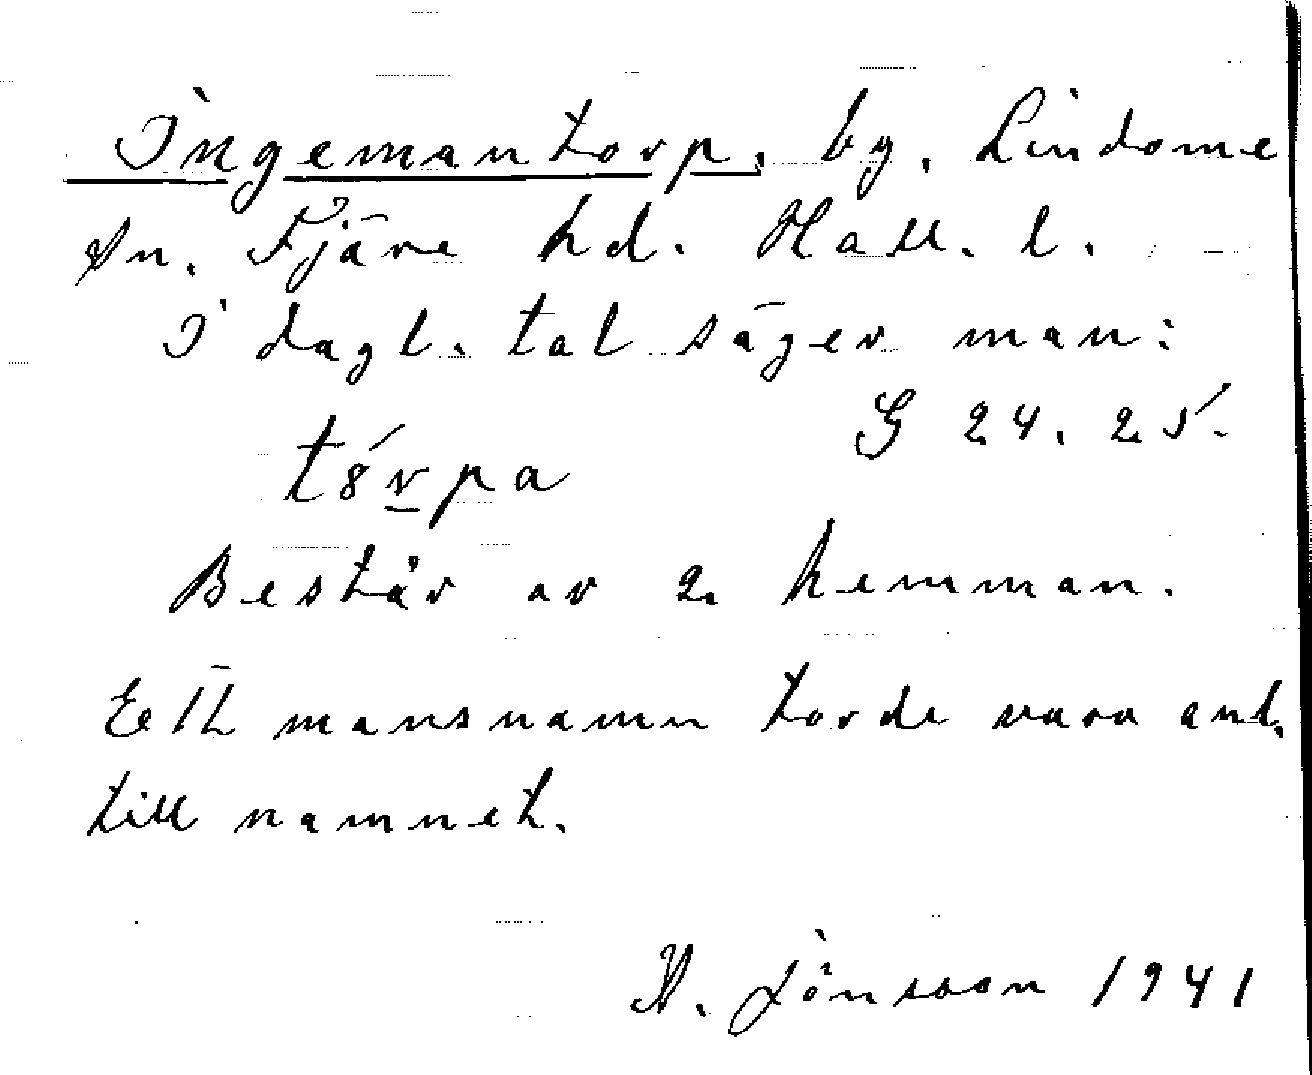 Ingemantorp. by. Lindome
sn. Fjäre hd. Hall. l.
I dagl. tal säger man:
G 24. 25.
tórpa
Består av 2 hemman.
Ett mansnamn torde vara anl.
till namnet.
A. Jönsson 1941